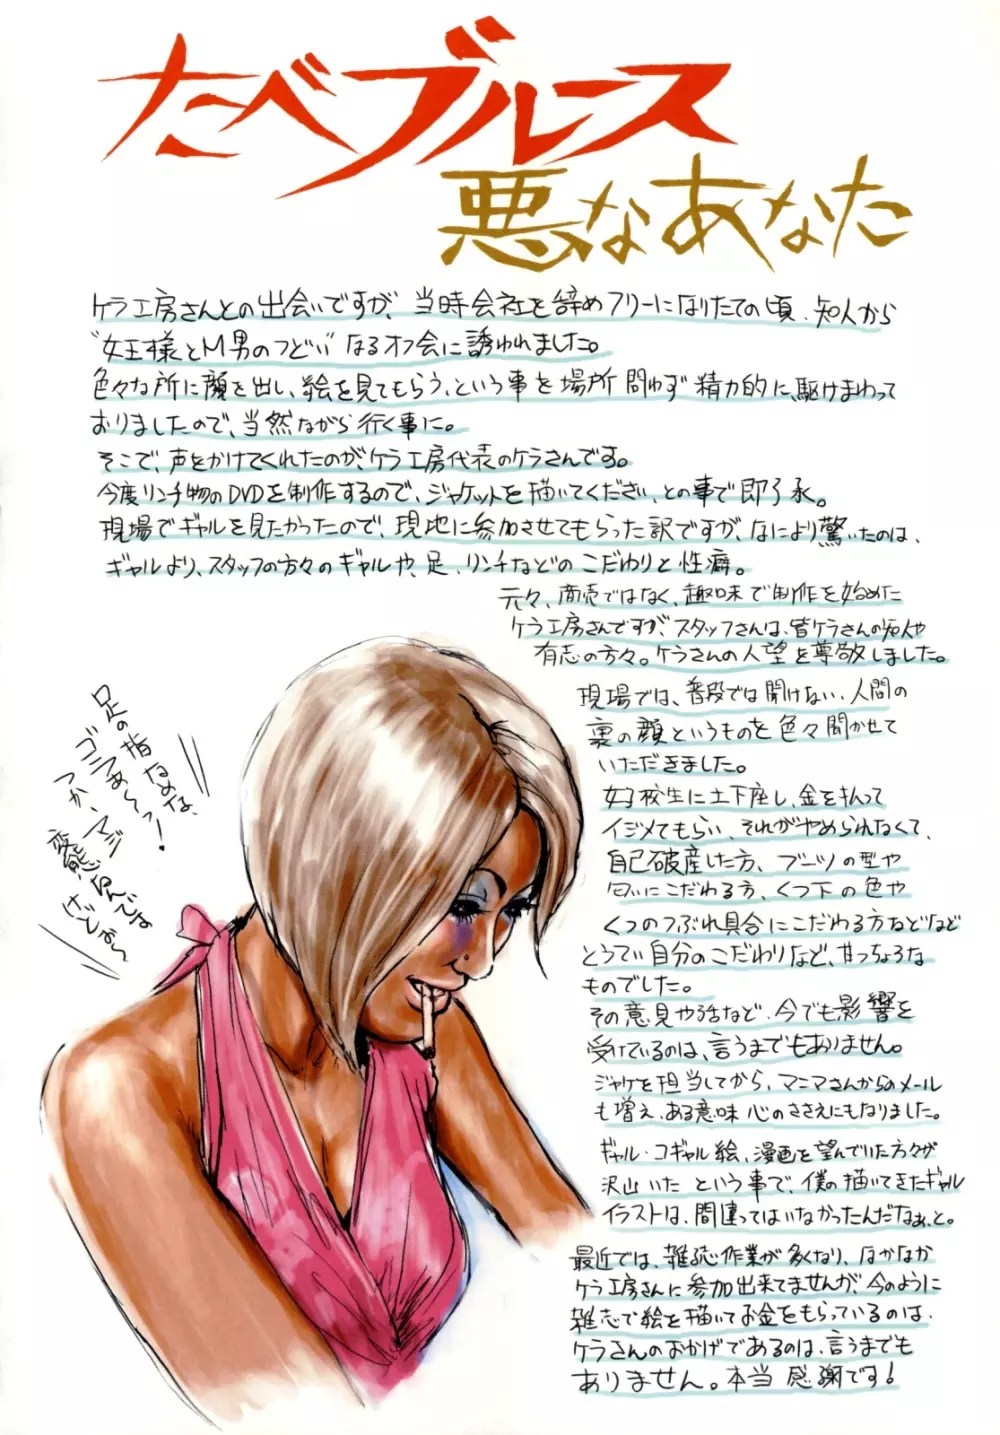 たべブルース
悪なあなた
ケラ工房さんとの出会いですが、当時会社を辞めフリーになりたての頃、知人から
"女王様とM男のつどい"なるオフ会に誘われました。
色々な所に顔を出し、絵を見てもらう、という事を場所問わず精力的に、駆けまわって
おりましたので、当然ながら行く事に。
そこで、声をかけてくれたのが、ケラ工房代表のケラさんです。
今度リンチ物のDVDを制作するので、ジャケットを描いてください、との事で即了承。
現場でギャルを見たかったので、現地に参加させてもらった訳ですが、なにより驚いたのは、
ギャルより、スタッフの方々のギャルや、足、リンチなどのこだわりと性癖。
元々、商売ではなく、趣味で制作を始めた
ケラ工房さんですが、スタッフさんは、皆ケラさんの知人や
有志の方々。ケラさんの人望を尊敬しました。
現場では、普段では聞けない、人間の
裏の顔というものを色々聞かせて
いただきました。
女子校生に土下座し、金を払って
イジメてもらい、それがやめられなくて、
自己破産した方、ブーツの型や
匂いにこだわる方、くつ下の色や
くつのつぶれ具合にこだわる方などなど
とうてい自分のこだわりなど、甘っちょろな
ものでした。
その意見や話など、今でも影響を
受けているのは、言うまでもありません。
ジャケを担当してから、マニマさんからのメール
も増え、ある意味心のささえにもなりました。
ギャル・コギャル絵、漫画を望んでいた方々が
沢山いたという事で、僕の描いてきたギャル
イラストは、間違ってはいなかったんだなぁ、と。
最近では、雑誌作業が多くなり、なかなか
ケラ工房さんに参加出来てませんが、今のように
雑志で絵を描いてお金をもらっているのは、
ケラさんのおかげであるのは、言うまでも
ありません。本当感謝です!
足の指なめな、
ゴラあ〜っ!
つか、マジ
変態